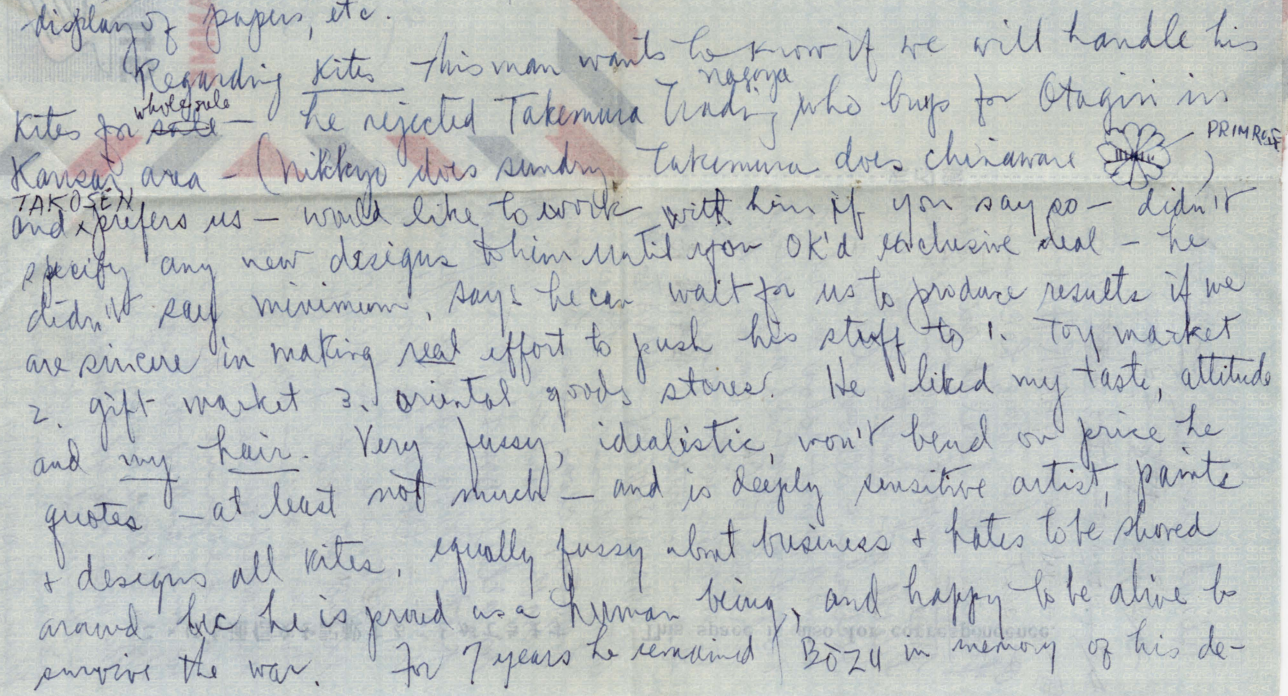 display of papers, etc.
Regarding Kites This man wants to know if we will handle his
nagoya
Kites for wholesale — he rejected Takemura Trading, who buys for Otagiri in
PRIMROSE
Kansai area — (Nikkyo does sundry, Takemura does chinaware )
TAKOSEN
and prefers us — would like to work with him if you say so — didn't
specify any new designs to him until you OK'd exclusive deal — he
didn't say minimum, says he can wait for us to produce results if we
are sincere in making real effort to push his stuff to 1. Toy market
2. gift market 3. oriental goods stores. He liked my taste, attitude
and my hair. Very fussy, idealistic, won't bend on price he
quotes — at least not much — and is deeply sensitive artist, paints
+ designs all kites, equally fussy about business + hates to be shoved
around bec he is proud as a human being, and happy to be alive to
survive the war. For 7 years he remained BOZU in memory of his de-
This space is also for correspondence.